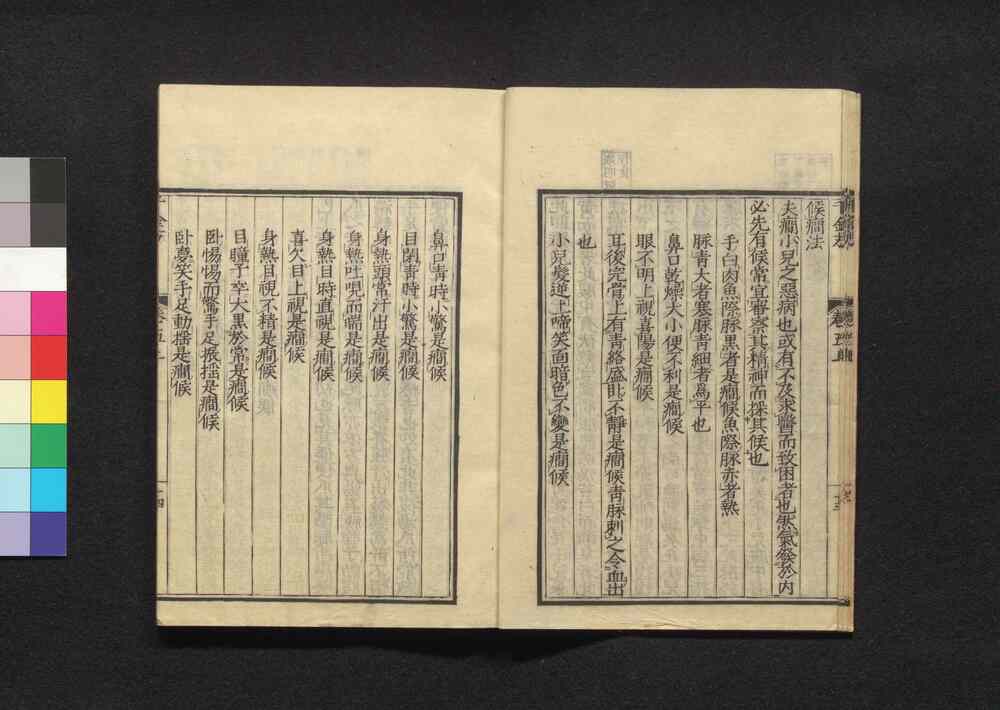 候癇法
夫癇小兒之惡病也或有不及求醫而致困者也然氣發於内
必先有候常宜審察其精神而採其候也
手白肉魚際脉黒者是癇候魚際脉赤者熱
脉青大者寒脉青細者爲平也
鼻口乾燥大小便不利是癇候
眼不明上視喜陽是癇候
耳後完骨上有青絡盛臥不靜是癇候青脉刺之令血出
也
小兒髮逆上啼笑面暗色不變是癇候
鼻口青時小驚是癇候
目閉青時小驚是癇候
身熱頭常汗出是癇候
身熱吐哯而喘是癇候
身熱目時直視是癇候
喜欠目上視是癇候
身熱目視不精是癇候
目瞳子卒大黒於常是癇候
卧惕惕而驚手足振揺是癇候
卧夢笑手足動揺是癇候